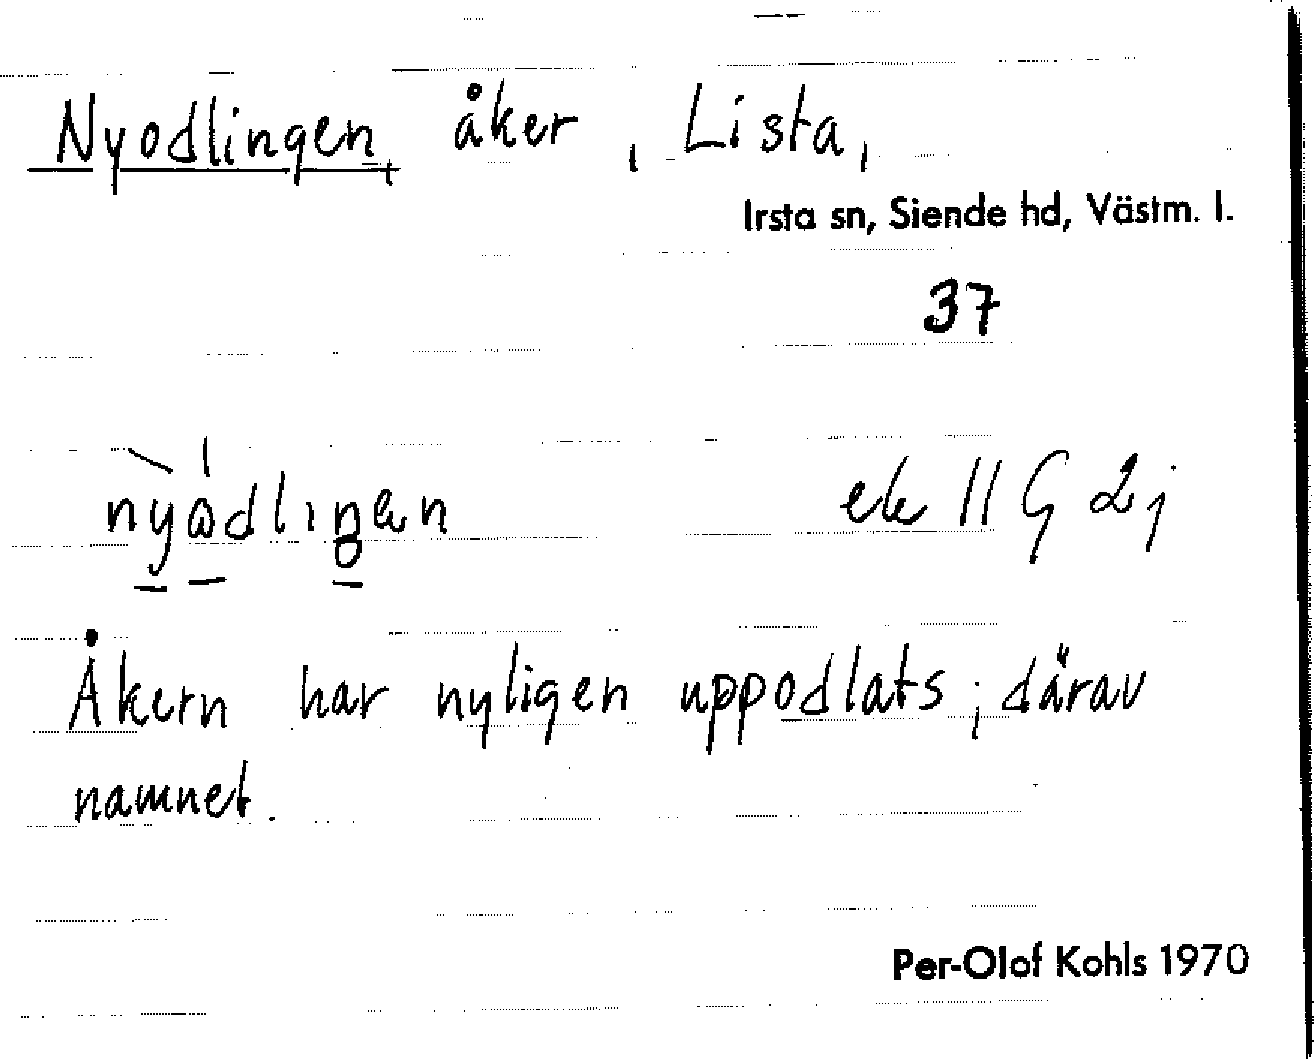 Nyodlingen, åker, Lista,
Irsta sn, Siende hd, Västm. l.
37
ek 11 G 2j
Åkern har nyligen uppodlats; därav
namnet.
Per-Olof Kohls 1970